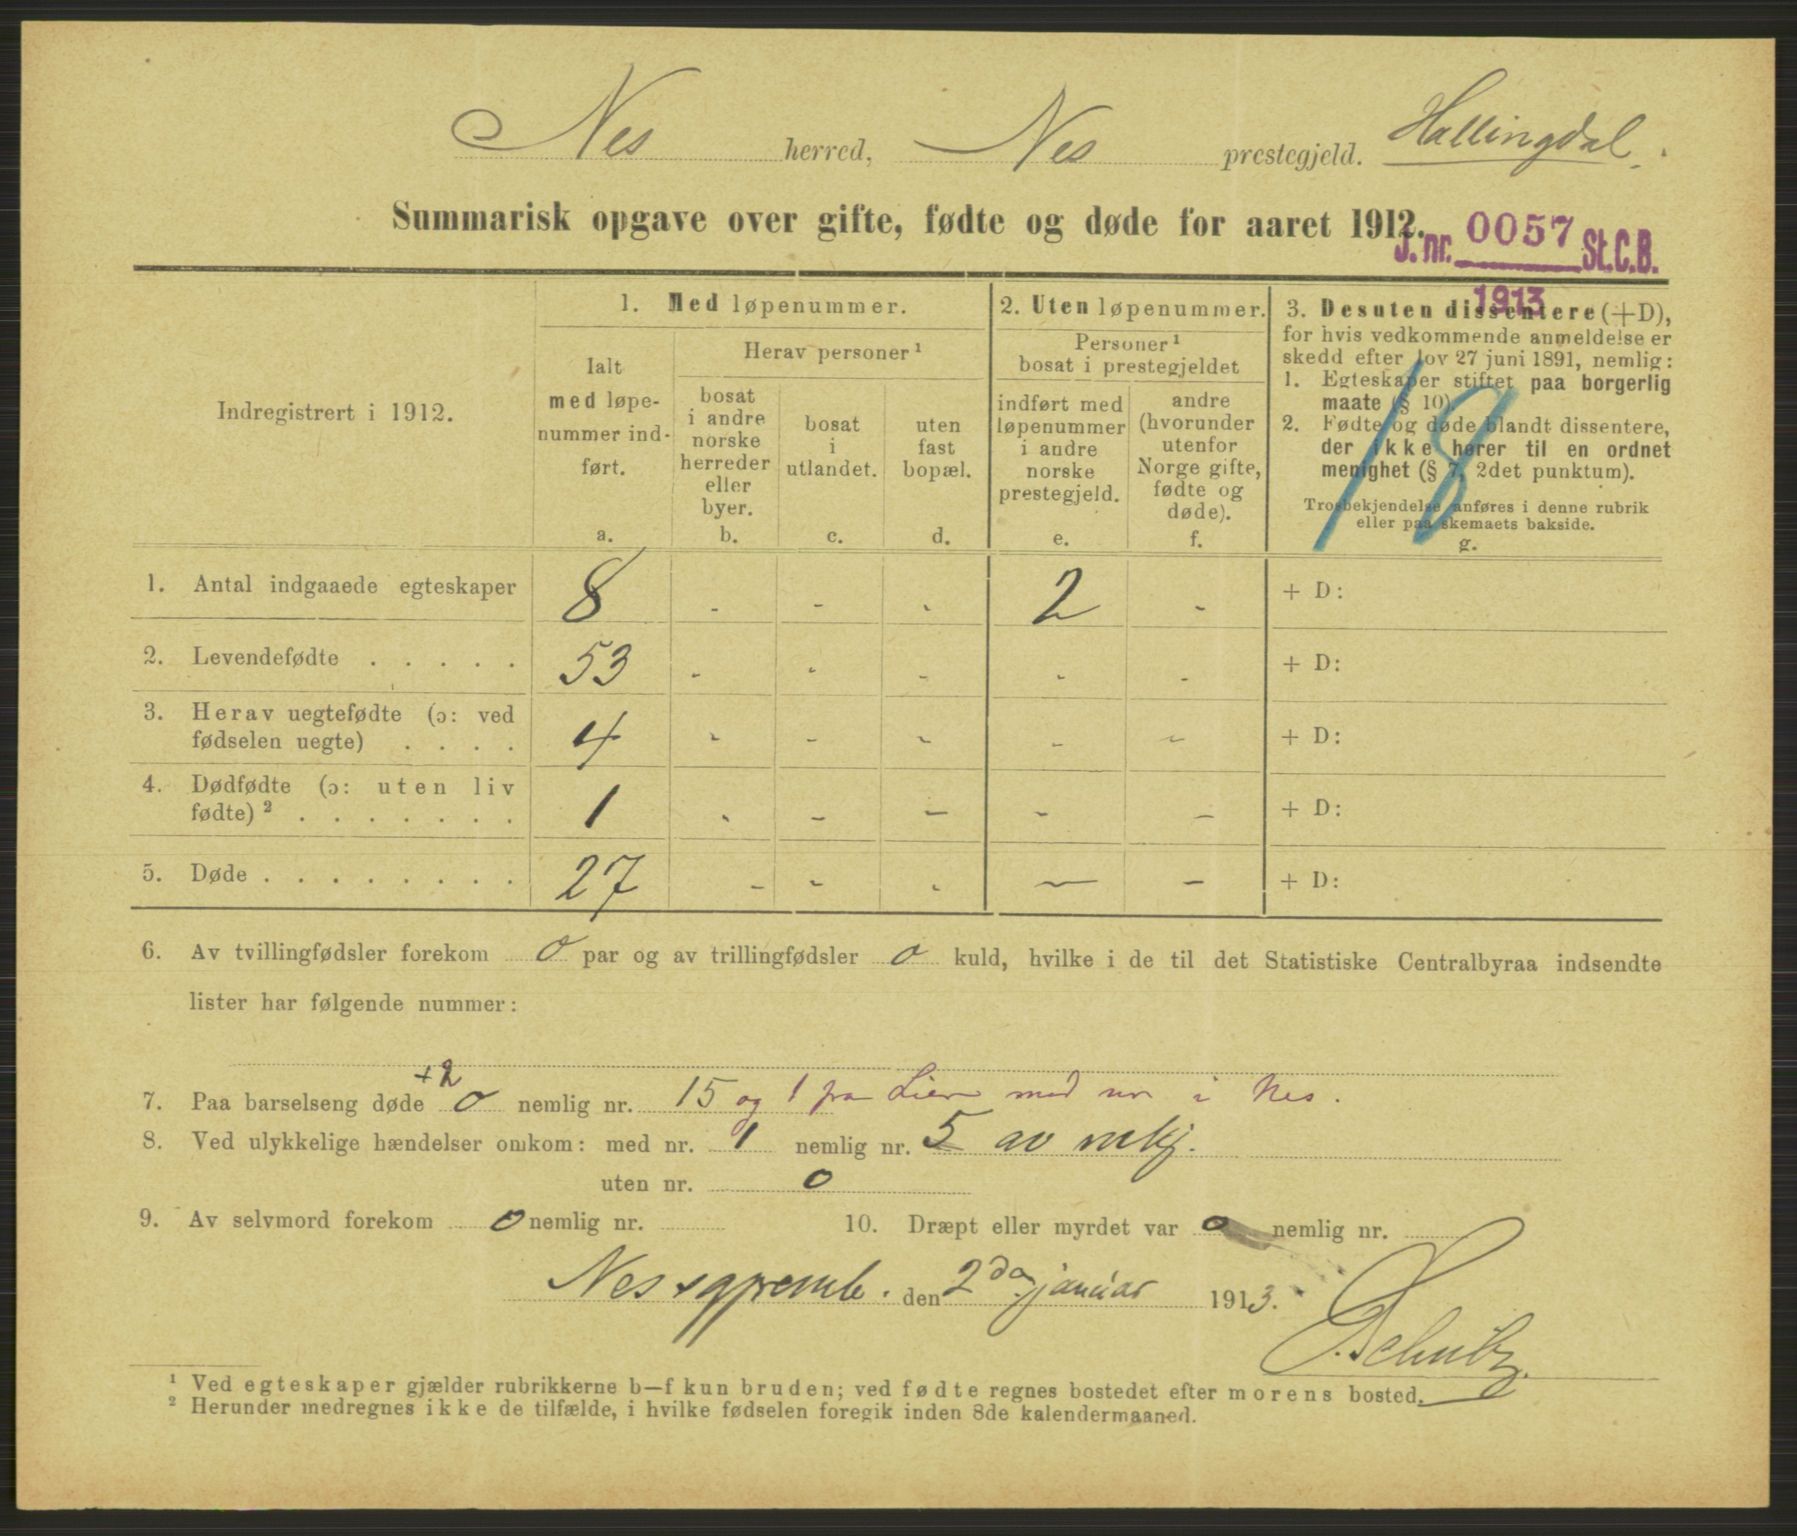 Nes herred, Nes prestegjeld. Hallingdal.
Summarisk opgave over gifte, fødte og døde for aaret 1912.
J. nr. 0057 St. C. B.
1913
18
Indregistrert i 1912.
1. Med løpenummer.
Ialt med løpe-nummer ind-ført.
a.
Herav personer ¹
bosat i andre norske herreder eller byer.
b.
bosat i utlandet.
c.
uten fast bopæl.
d.
2. Uten løpenummer.
Personer ¹ bosat i prestegjeldet
indført med løpenummer i andre norske prestegjeld.
e.
andre (hvorunder utenfor Norge gifte, fødte og døde).
f.
3. Desuten dissentere (+D),
for hvis vedkommende anmeldelse er
skedd efter lov 27 juni 1891, nemlig:
1. Egteskaper stiftet paa borgerlig
maate (§ 10).
2. Fødte og døde blandt dissentere,
der ikke hører til en ordnet
menighet (§ 7, 2det punktum).
Trosbekjendelse anføres i denne rubrik
eller paa skemaets bakside.
g.
1. Antal indgaaede egteskaper 8 - - - 2 - + D:
2. Levendefødte . . . . . 53 - - - - - + D:
3. Herav uegtefødte (ɔ: ved
fødselen uegte) . . . . 4 - - - - - + D:
4. Dødfødte (ɔ: uten liv
fødte) ² . . . . . . . 1 - - - - - + D:
5. Døde . . . . . . . . 27 - - - - - + D:
6. Av tvillingfødsler forekom 0 par og av trillingfødsler 0 kuld, hvilke i de til det Statistiske Centralbyraa indsendte
lister har følgende nummer:
+2
7. Paa barselseng døde 0 nemlig nr. 15 og 1 fra Lier med nr i Nes.
8. Ved ulykkelige hændelser omkom: med nr. 1 nemlig nr. 5 av mkj.
uten nr. 0
9. Av selvmord forekom 0 nemlig nr. 10. Dræpt eller myrdet var 0 nemlig nr.
den 2 januar 1913.
Schultz.
¹ Ved egteskaper gjælder rubrikkerne b—f kun bruden; ved fødte regnes bostedet efter morens bosted.
² Herunder medregnes ikke de tilfælde, i hvilke fødselen foregik inden 8de kalendermaaned.